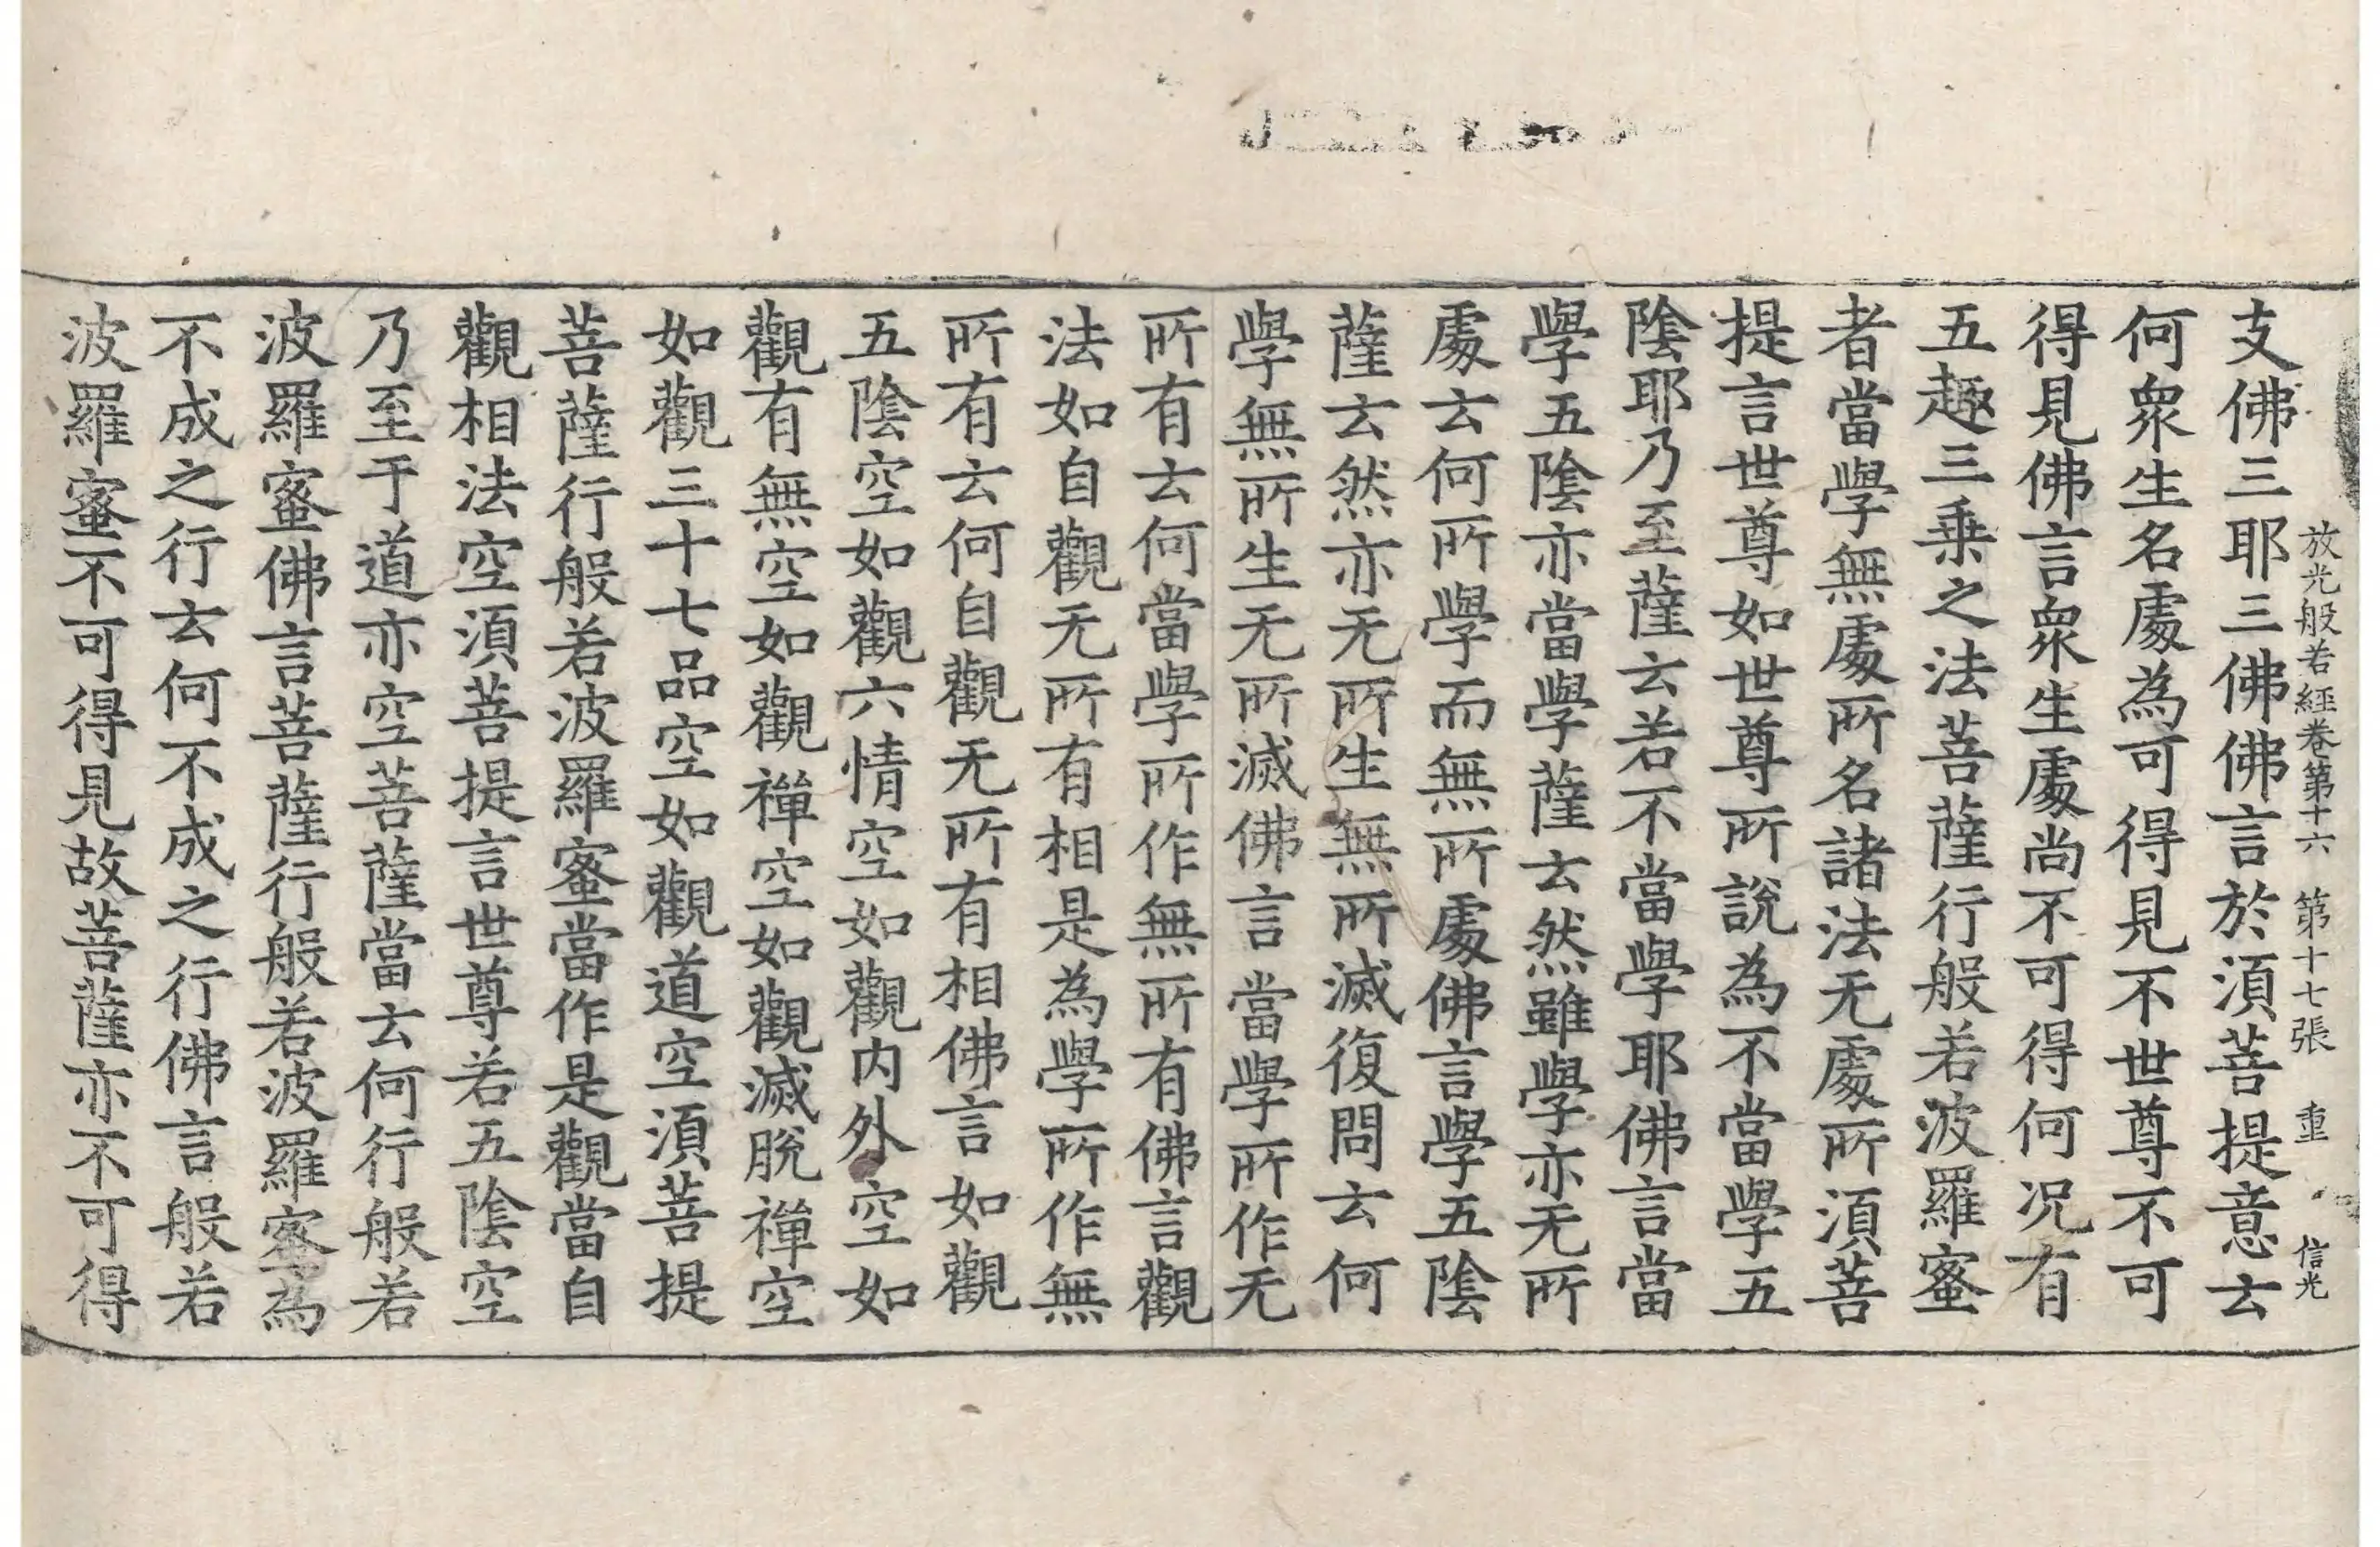 放光般若經卷第十六 第十七張 重 信光
支佛三耶三佛佛言於須菩提意云
何衆生名處為可得見不世尊不可
得見佛言衆生處尚不可得何況有
五趣三乗之法菩薩行般若波羅蜜
者當學無處所名諸法无處所須菩
提言世尊如世尊所說為不當學五
陰耶乃至薩云若不當學耶佛言當
學五陰亦當學薩云然雖學亦无所
處云何所學而無所處佛言學五陰
薩云然亦无所生無所滅復問云何
學無所生无所滅佛言當學所作无
所有云何當學所作無所有佛言觀
法如自觀无所有相是為學所作無
所有云何自觀无所有相佛言如觀
五陰空如觀六情空如觀内外空如
觀有無空如觀禪空如觀滅脫禪空
如觀三十七品空如觀道空須菩提
菩薩行般若波羅蜜當作是觀當自
觀相法空須菩提言世尊若五陰空
乃至于道亦空菩薩當云何行般若
波羅蜜佛言菩薩行般若波羅蜜為
不成之行云何不成之行佛言般若
波羅蜜不可得見故菩薩亦不可得